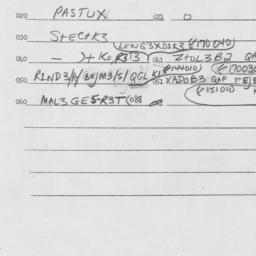 020 PASTUX 021 0
030 S+EC+K3
LENG3XD1R3 (170040)
040 - )+ K0, R3T3 041 Z+OL3B2 QA
(144010) (17003
050 R1ND3/ BEJM3/S/QGL K1 051 XADOB3 QAP
(151010)
060 MAL3 GE5-R3T (088